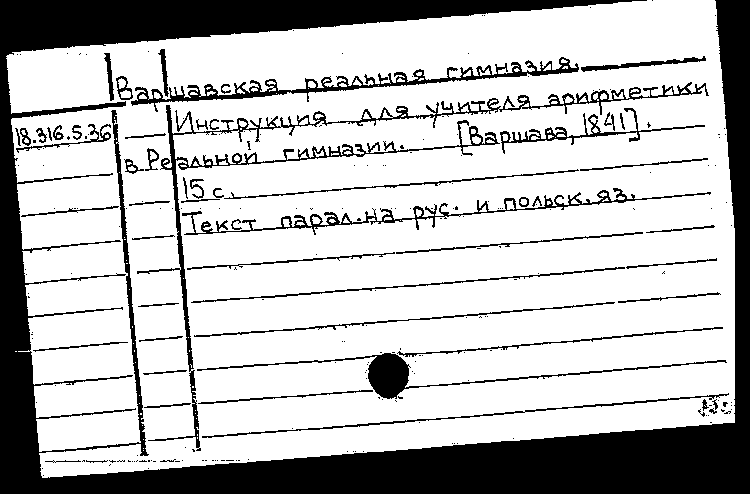 Варшавская реальная гимназия.
18.316.5.36
Инструкция для учителя арифметики
в Реальной гимназии. [Варшава, 1841].
15 с.
Текст парал. на рус. и польск. яз.